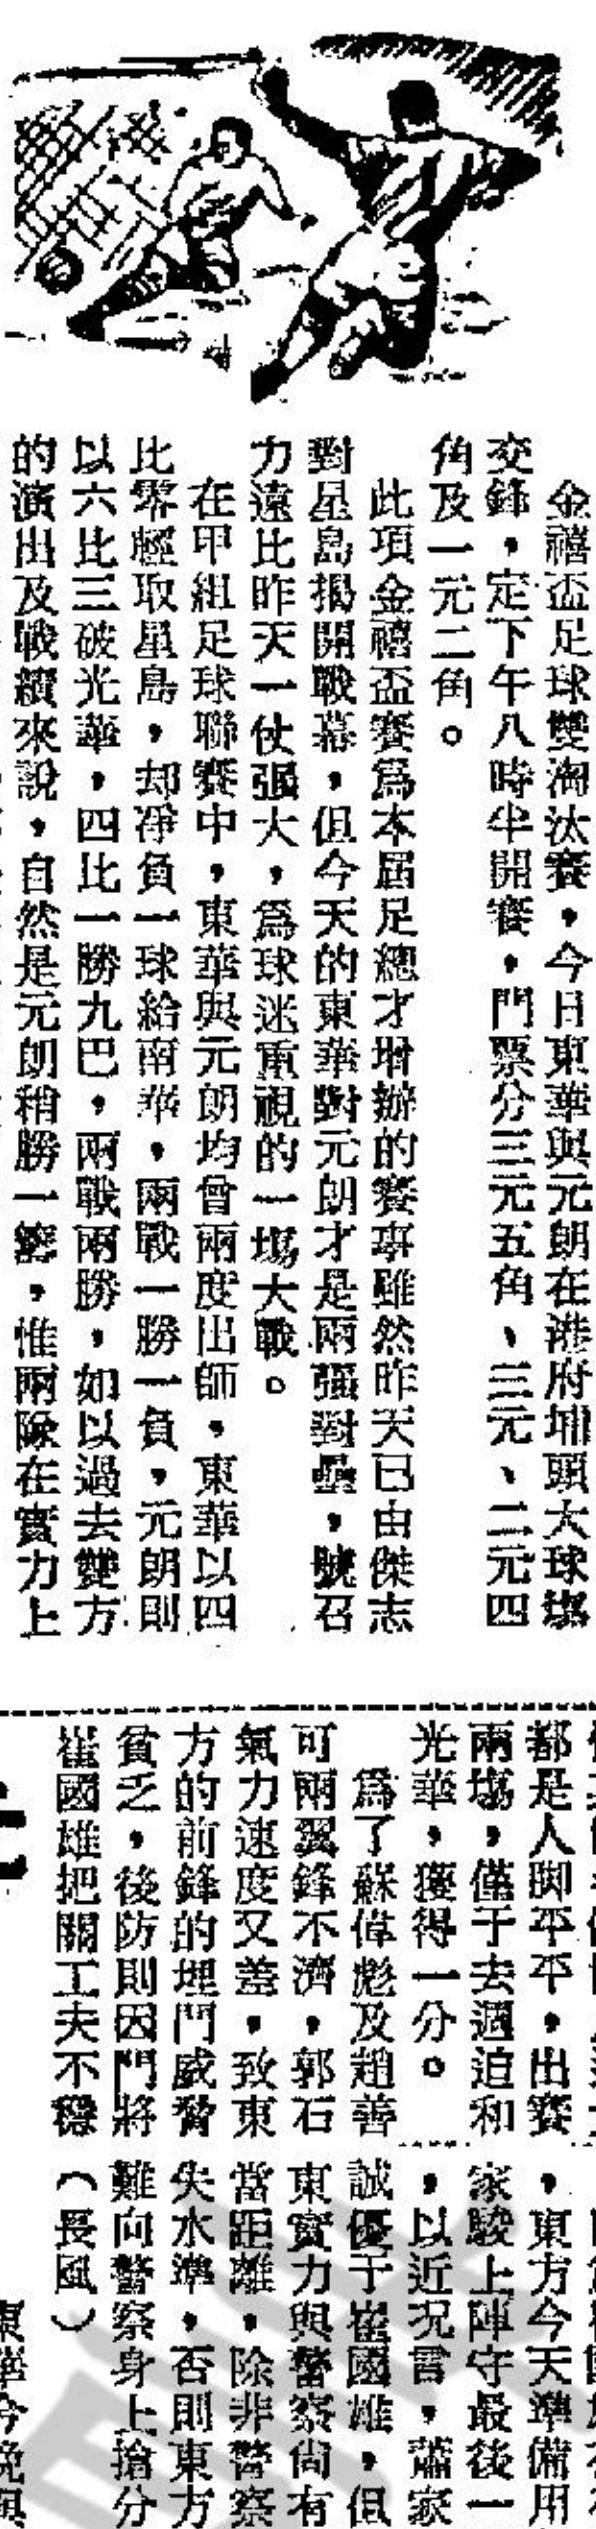 金禧盃足球雙淘汰賽，今日東華與元朗在港府埔頭大球塲
交鋒，定下午八時半開賽，門票分三元五角、三元、二元四
角及一元二角。
此項金禧盃賽為本屆足總才增辦的賽事雖然昨天已由傑志
對星島揭開戰幕，但今天的東華對元朗才是兩强對壘，號召
力遠比昨天一仗强大，為球迷重視的一塲大戰。
在甲組足球聯賽中，東華與元朗均曾兩度出師，東華以四
比零輕取星島，却淨負一球給南華，兩戰一勝一負，元朗則
以六比三破光華，四比一勝九巴，兩戰兩勝，如以過去雙方
的演出及戰績來說，自然是元朗稍勝一籌，惟兩隊在實力上
都是人脚平平，出賽
兩塲，僅于去週迫和
光華，獲得一分。
為了蘇偉彪及趙善
可兩翼鋒不濟，郭石
氣力速度又差，致東
方的前鋒的埋門威脅
貧乏，後防則因門將
崔國雄把關工夫不穩
，東方今天準備用
家駿上陣守最後一
，以近況言，蕭家
誠優于崔國雄，但
東實力與警察尙有
當距離，除非警察
失水準，否則東方
難向警察身上搶分
（長風）
東華今晚與